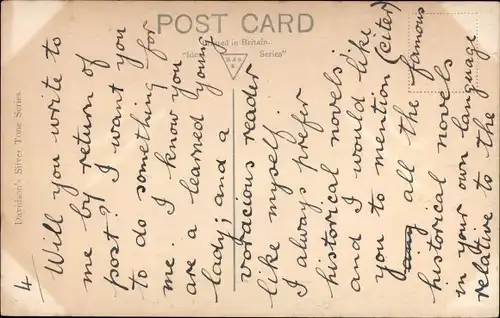 POST CARD
Printed in Britain.
"Ideal Series"
Davidson's Silver Tone Series.
4
Will you write to
me by return of
post? I want you
to do something for
me. I know you
are a learned young
lady; and a
voracious reader
like myself.
I always prefer
historical novels
and I would like
you to mention (citer)
all the famous
historical novels
in your own language
relative to the